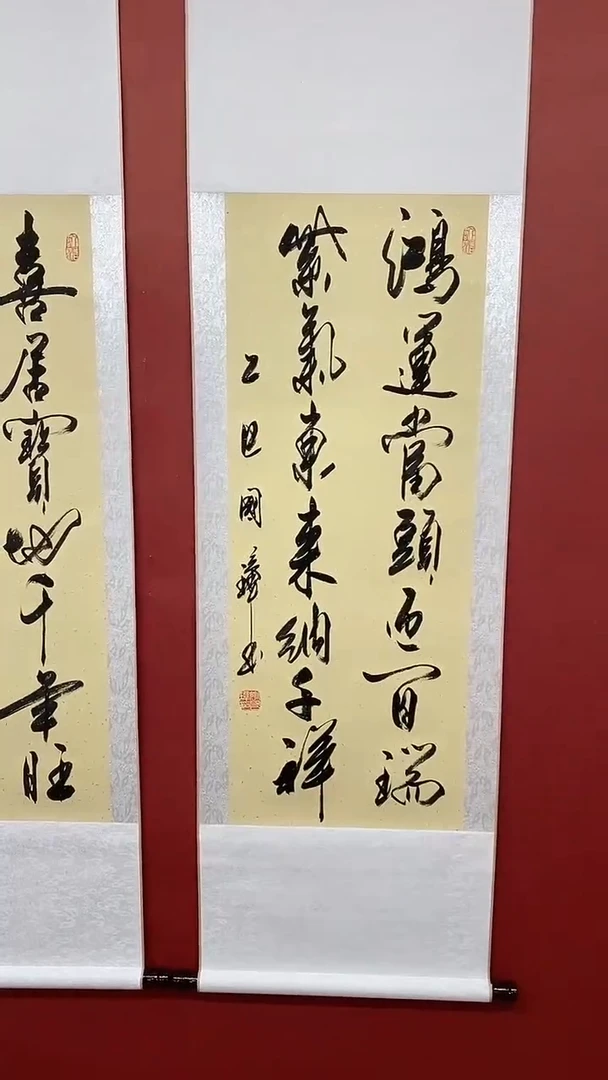 鴻運當頭迎百瑞
紫氣東来納千祥
乙巳國
書
喜居寶地千年旺